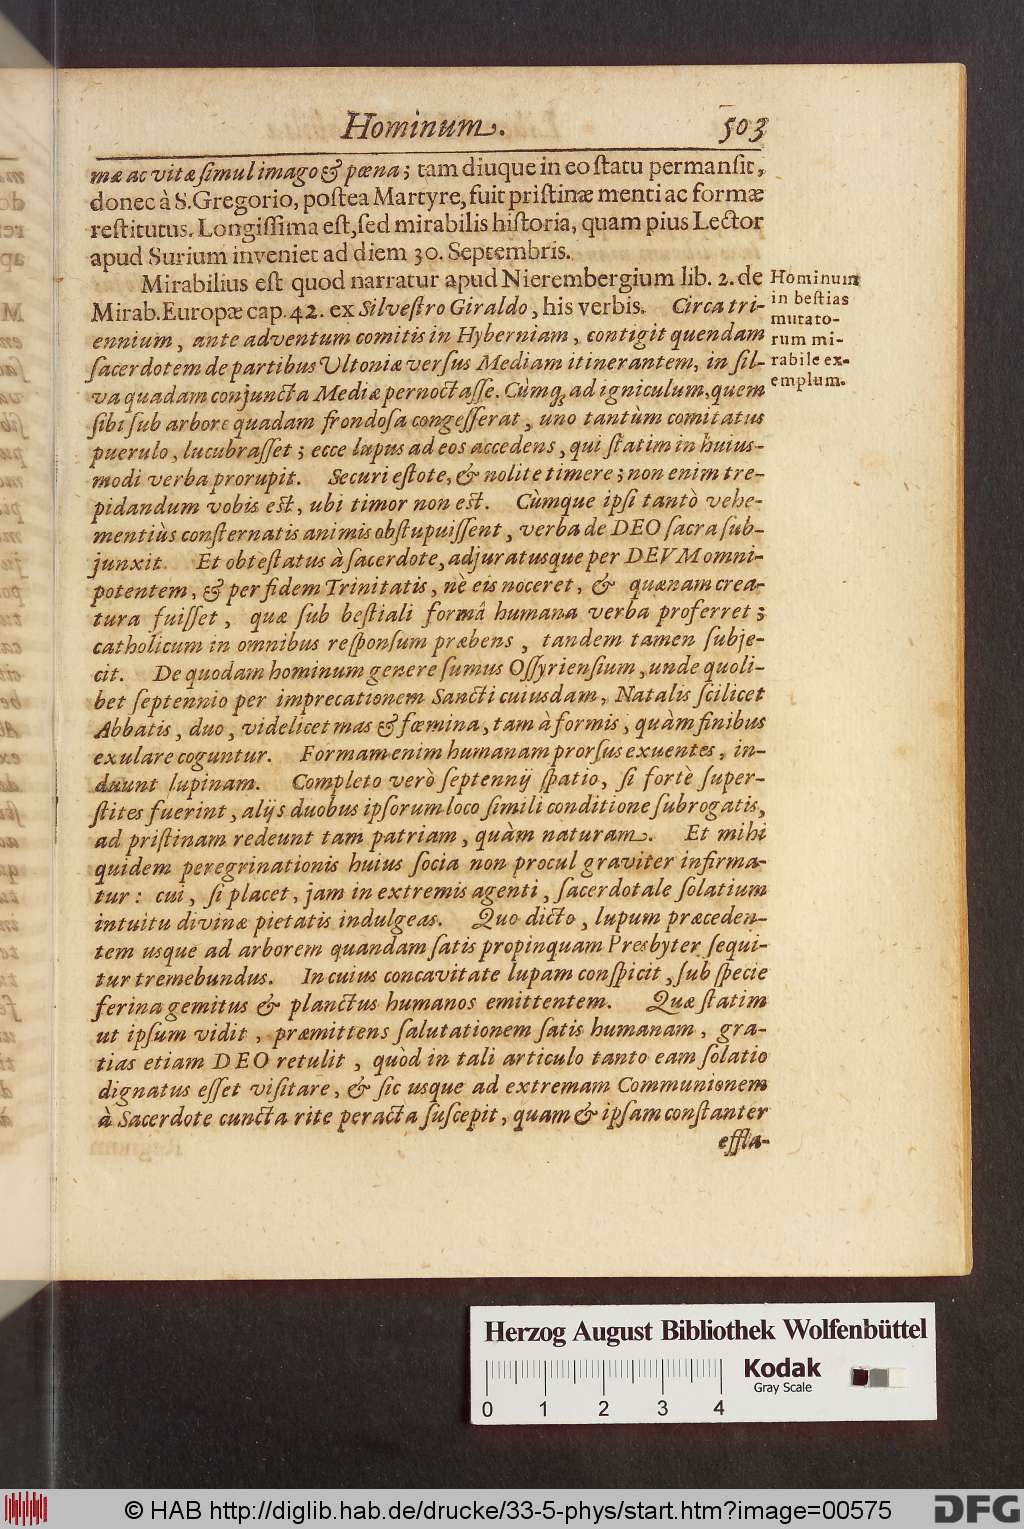 Hominum. 503
mæ ac vitæ ſimul imago & pœna; tam diuque in eo ſtatu permanſit,
donec à S. Gregorio, poſtea Martyre, fuit priſtinæ menti ac formæ
reſtitutus. Longiſſima eſt, ſed mirabilis hiſtoria, quam pius Lector
apud Surium inveniet ad diem 30. Septembris.
Mirabilius eſt quod narratur apud Nierembergium lib. 2. de
Mirab. Europæ cap. 42. ex Silveſtro Giraldo, his verbis. Circa tri-
ennium, ante adventum comitis in Hyberniam, contigit quendam
ſacerdotem de partibus Ultoniæ verſus Mediam itinerantem, in ſil-
va quadam conjuncta Mediæ pernoctaſſe. Cùmq; ad igniculum, quem
ſibi ſub arbore quadam frondoſa congeſſerat, uno tantùm comitatus
puerulo, lucubraſſet; ecce lupus ad eos accedens, qui ſtatim in huius-
modi verba prorupit. Securi eſtote, & nolite timere; non enim tre-
pidandum vobis eſt, ubi timor non eſt. Cùmque ipſi tantò vehe-
mentiùs conſternatis animis obſtupuiſſent, verba de DEO ſacra ſub-
junxit. Et obteſtatus à ſacerdote, adjuratusque per DEVM omni-
potentem, & per fidem Trinitatis, nè eis noceret, & quænam crea-
tura fuiſſet, quæ ſub beſtiali formâ humana verba proferret;
catholicum in omnibus reſponſum præbens, tandem tamen ſubje-
cit. De quodam hominum genere ſumus Oſſyrienſium, unde quoli-
bet ſeptennio per imprecationem Sancti cuiusdam, Natalis ſcilicet
Abbatis, duo, videlicet mas & fœmina, tam à formis, quàm finibus
exulare coguntur. Formam enim humanam prorſus exuentes, in-
duunt lupinam. Completo verò ſeptennij ſpatio, ſi fortè ſuper-
ſtites fuerint, alijs duobus ipſorum loco ſimili conditione ſubrogatis,
ad priſtinam redeunt tam patriam, quàm naturam. Et mihi
quidem peregrinationis huius ſocia non procul graviter infirma-
tur: cui, ſi placet, jam in extremis agenti, ſacerdotale ſolatium
intuitu divinæ pietatis indulgeas. Quo dicto, lupum præceden-
tem usque ad arborem quandam ſatis propinquam Presbyter ſequi-
tur tremebundus. In cuius concavitate lupam conſpicit, ſub ſpecie
ferina gemitus & planctus humanos emittentem. Quæ ſtatim
ut ipſum vidit, præmittens ſalutationem ſatis humanam, gra-
tias etiam DEO retulit, quòd in tali articulo tanto eam ſolatio
dignatus eſſet viſitare, & ſic usque ad extremam Communionem
à Sacerdote cuncta rite peracta ſuſcepit, quam & ipſam conſtanter
effla-
Hominum
in beſtias
mutato-
rum mi-
rabile ex-
emplum.
Herzog August Bibliothek Wolfenbüttel
Kodak
Gray Scale
0 1 2 3 4
© HAB http://diglib.hab.de/drucke/33-5-phys/start.htm?image=00575
DFG